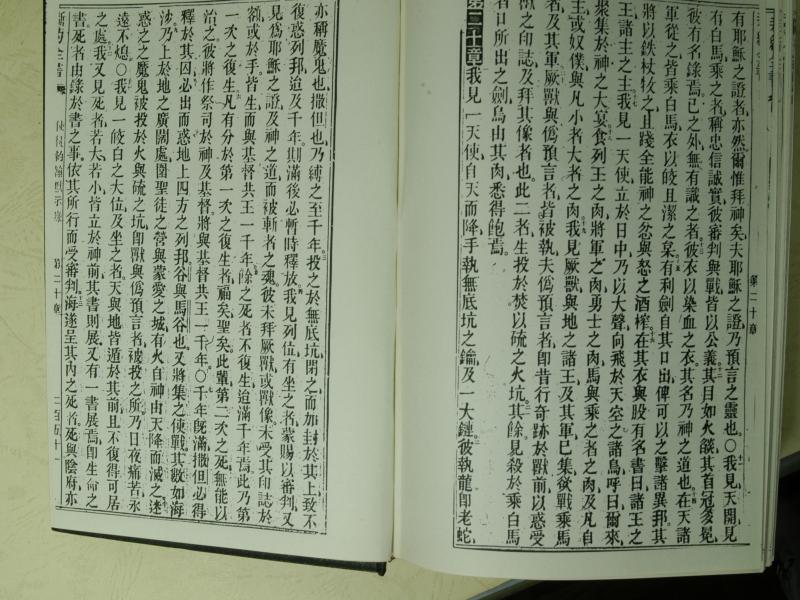 有耶穌之證者亦然爾惟拜神矣夫耶穌之證乃預言之靈也〇我見天開見
有白馬乘之者稱忠信誠實彼審判與戰皆以公義其目如火燄其首冠多冕
彼有名錄焉己之外無有識之者彼衣以染血之衣其名乃神之道也在天諸
軍從之皆乘白馬衣以皎且潔之枲有利劍自其口出俾可以之擊諸異邦其
將以鉄杖牧之且踐全能神之忿與怒之酒榨在其衣與股有名書曰諸王之
王諸主之主我見一天使立於日中乃以大聲向飛於天空之諸鳥呼曰爾來
聚集於神之大宴食列王之肉將軍之肉勇士之肉馬與乘之者之肉及凡自
主或奴僕與凡小者大者之肉我見厥獸與地之諸王及其軍已集欲戰乘馬
者及其軍厥獸與僞預言者皆被執夫僞預言者卽昔行奇跡於獸前以惑受
獸之印誌及拜其像者也此二者生投於焚以硫之火坑其餘見殺於乘白馬
者口所出之劍鳥由其肉悉得飽焉
第二十章 我見一天使自天而降手執無底坑之鑰及一大鏈彼執龍卽老蛇
第二十章
亦稱魔鬼也撒但也乃縛之至千年投之於無底坑閉之而加封於其上致不
復惑列邦迨及千年期滿後必暫時釋放我見列位有坐之者蒙賜以審判又
見爲耶穌之證及神之道而被斬者之魂彼未拜厥獸或獸像未受其印誌於
額或於手者生而與基督共王一千年餘之死者不復生迨滿千年焉此乃第
一次之復生凡有分於第一次之復生者福矣聖矣此輩第二次之死無能以
治之彼將作祭司於神及基督將與基督共王一千年〇千年旣滿撒但必得
釋於其囚必出而惑地上四方之列邦谷與馬谷也又將集之使戰其數如海
沙乃上於地之廣闊處圍聖徒之營與蒙愛之城有火自神由天降而滅之迷
惑之之魔鬼被投於火與硫之坑卽獸與僞預言者被投之所乃日夜痛苦永
遠不熄〇我見一皎白之大位及坐之者天與地皆遁於其前且不復得可居
之處我又見死者若大若小皆立於神前其書則展又有一書展焉卽生命之
書死者由錄於書之事依其所行而受審判海遂呈其內之死者死與陰府亦
新約全書
使徒約翰默示錄
第二十章
二百五十一